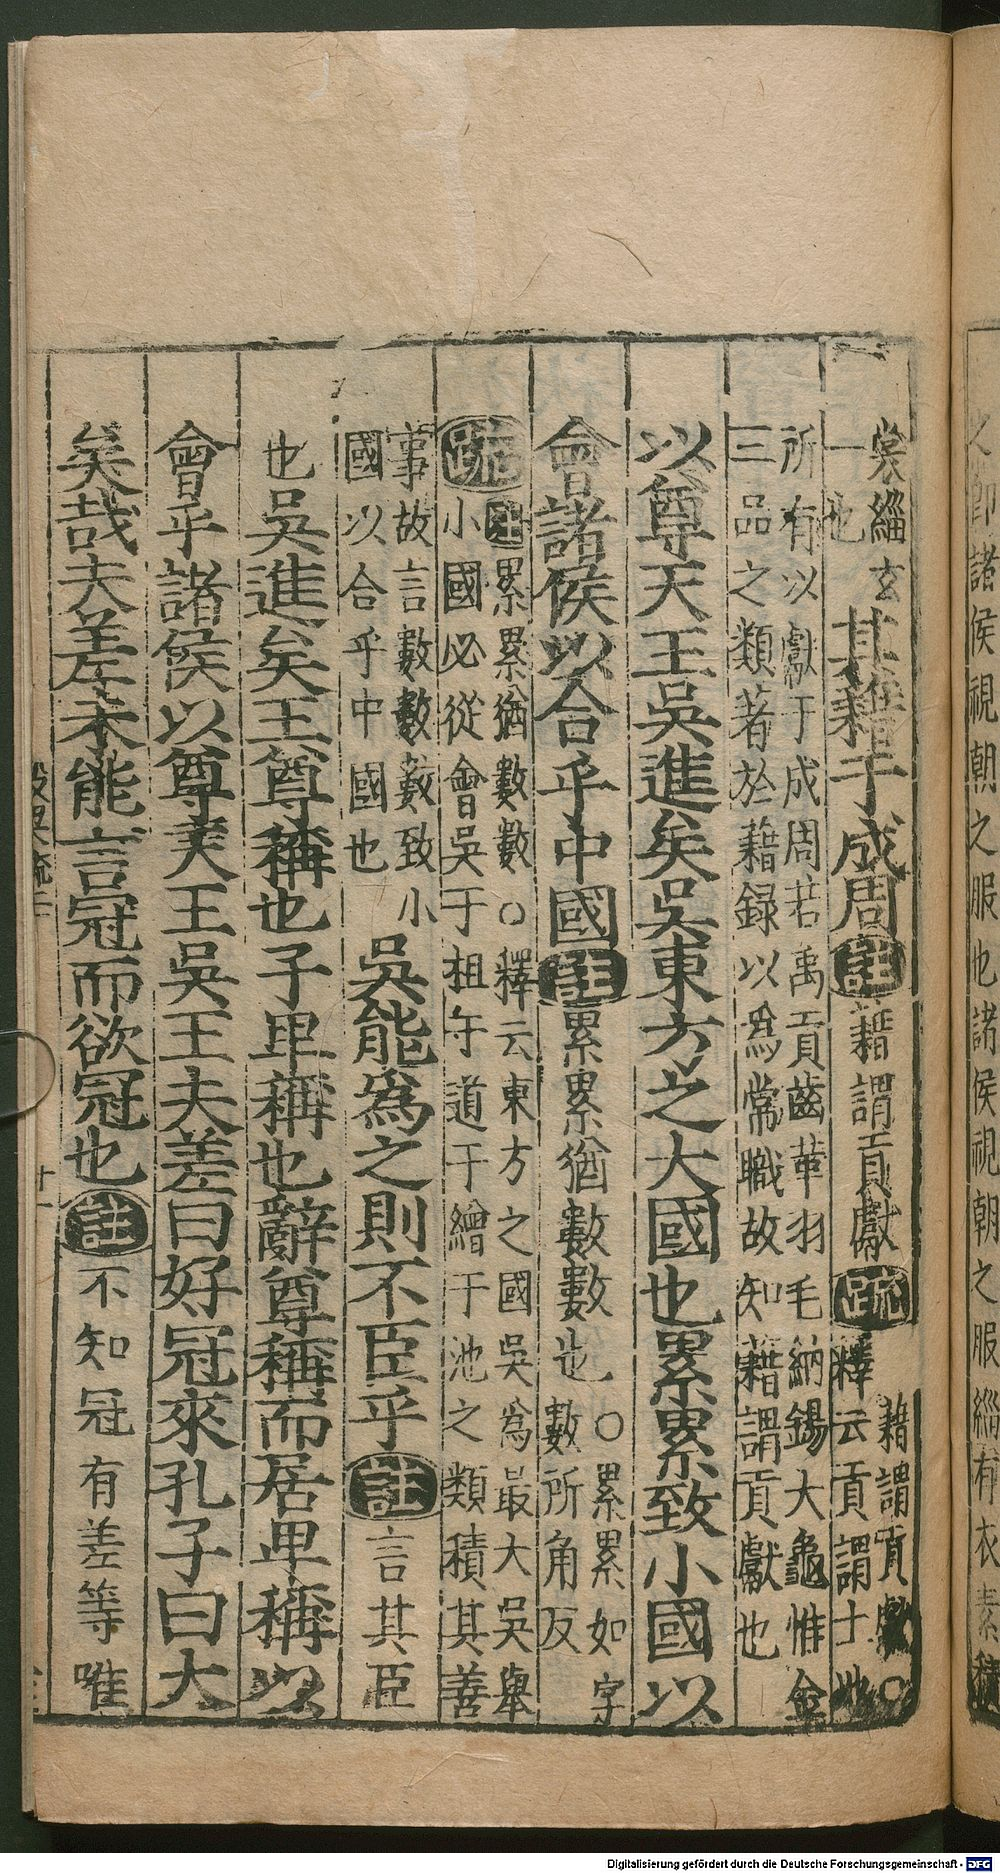 之卽諸侯視朝之服也諸侯視朝之服緇有衣素積
裳緇玄
一也
其藉于成周註藉謂貢獻疏
藉謂貢獻○
釋云貢謂土地
所有以獻于成周若禹貢齒革羽毛納錫大龜惟金
三品之類著於藉録以爲常職故知藉謂貢獻也
以尊天王吳進矣吳東方之大國也累累致小國以
會諸侯以合乎中國註累累猶數數也
○累累如字
數所角反
疏
註累累猶數數○釋云東方之國吳爲最大吳舉
小國必從會吳于柤午道于繒于池之類積其善
事故言數數數致小
國以合乎中國也
吳能爲之則不臣乎註言其臣
也吳進矣王尊稱也子卑稱也辭尊稱而居卑稱以
會乎諸侯以尊天王吳王夫差曰好冠來孔子曰大
矣哉夫差未能言冠而欲冠也註不知冠有差等唯
十一
Digitalisierung gefördert durch die Deutsche Forschungsgemeinschaft - DFG